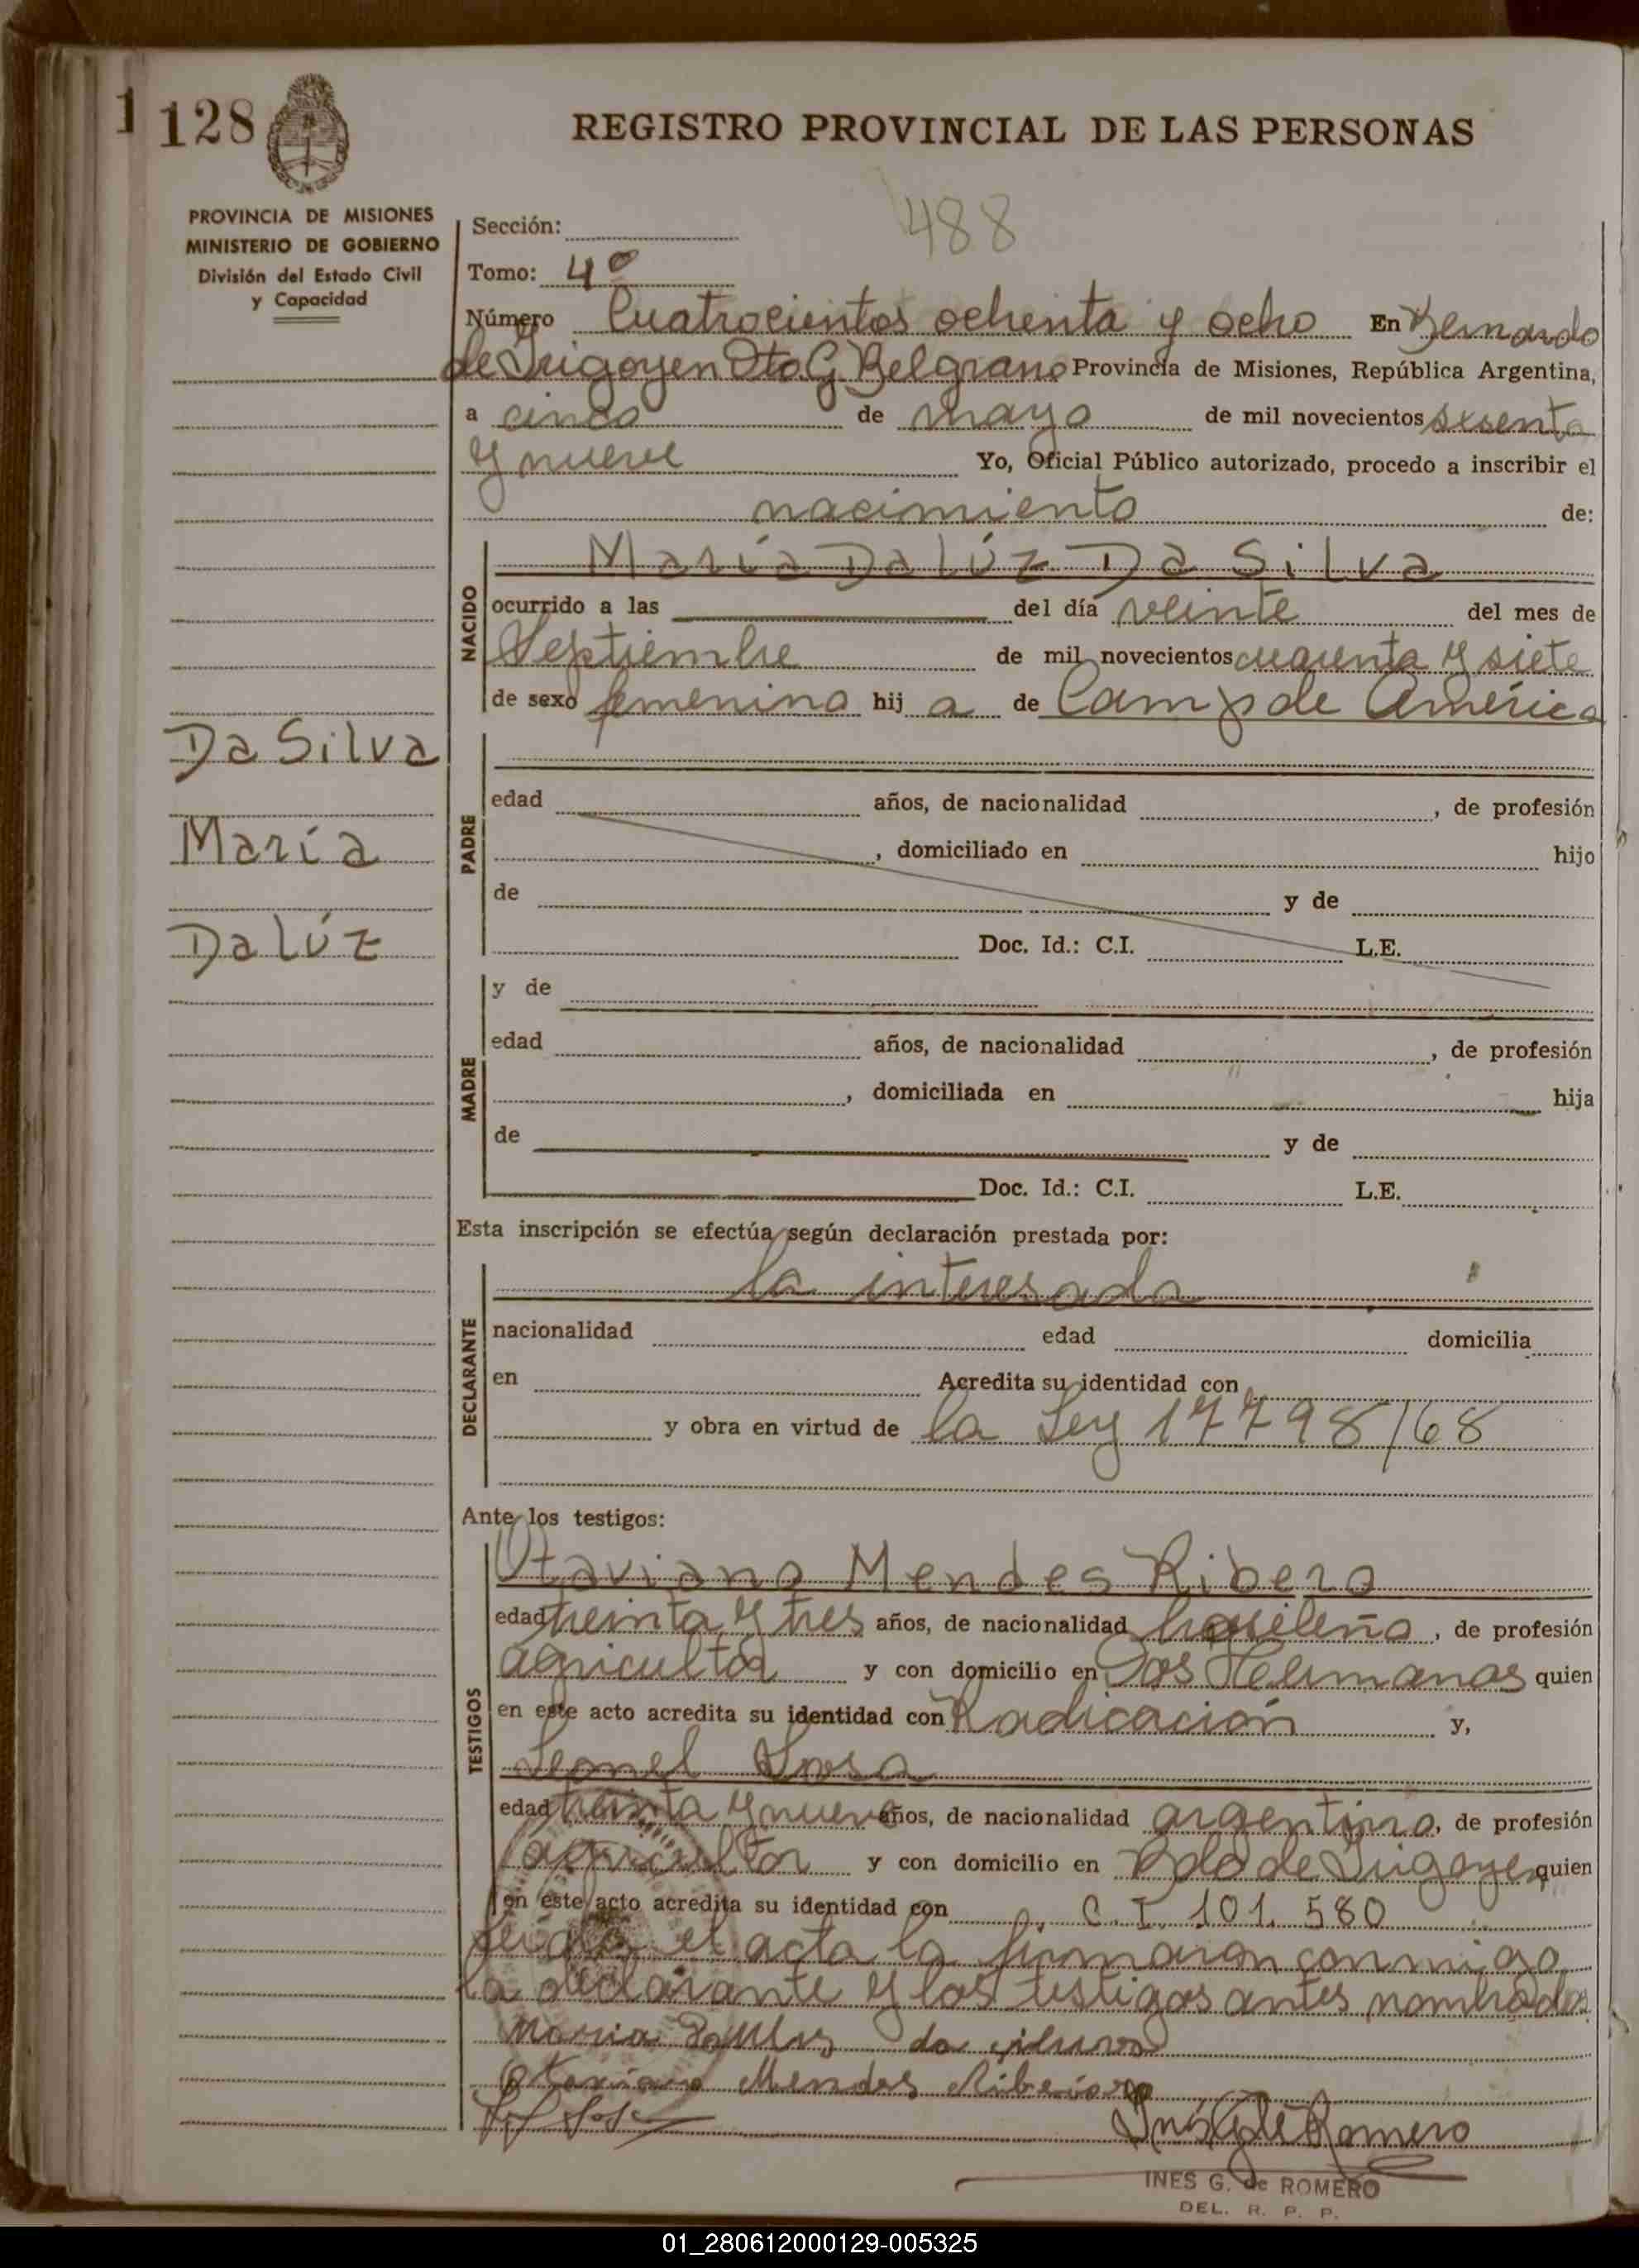 1 128
REGISTRO PROVINCIAL DE LAS PERSONAS
PROVINCIA DE MISIONES
MINISTERIO DE GOBIERNO
División del Estado Civil
y Capacidad
488
Sección:
Tomo: 4º
Número Cuatrocientos ochenta y ocho En Bernardo
de Irigoyen Dto. G. Belgrano Provincia de Misiones, República Argentina,
a cinco de mayo de mil novecientos sesenta
y nueve Yo, Oficial Público autorizado, procedo a inscribir el
nacimiento de:
NACIDO
María Da Lúz Da Silva
ocurrido a las del día veinte del mes de
Septiembre de mil novecientos cuarenta y siete
de sexo femenino hij a de Camp de América
Da Silva
María
Da Lúz
PADRE
edad años, de nacionalidad , de profesión
, domiciliado en hijo
de y de
Doc. Id.: C.I. L.E.
MADRE
y de
edad años, de nacionalidad , de profesión
, domiciliada en hija
de y de
Doc. Id.: C.I. L.E.
Esta inscripción se efectúa según declaración prestada por:
DECLARANTE
la interesada
nacionalidad edad domicilia
en Acredita su identidad con
y obra en virtud de la Ley 17798/68
Ante los testigos:
TESTIGOS
Otaviano Mendes Ribero
edad treinta y tres años, de nacionalidad brasileño, de profesión
agricultor y con domicilio en Dos Hermanas quien
en este acto acredita su identidad con Radicación y,
Leonel Sosa
edad treinta y nueve años, de nacionalidad argentino, de profesión
agricultor y con domicilio en Bdo de Irigoyen quien
en este acto acredita su identidad con C.I. 101.580
Leída el acta la firmaron conmigo
la declarante y los testigos antes nombrados
Maria da Luz da silva
Otaviano Mendes Ribeiro
Inés G de Romero
INES G. de ROMERO
DEL. R. P. P.
01_280612000129-005325